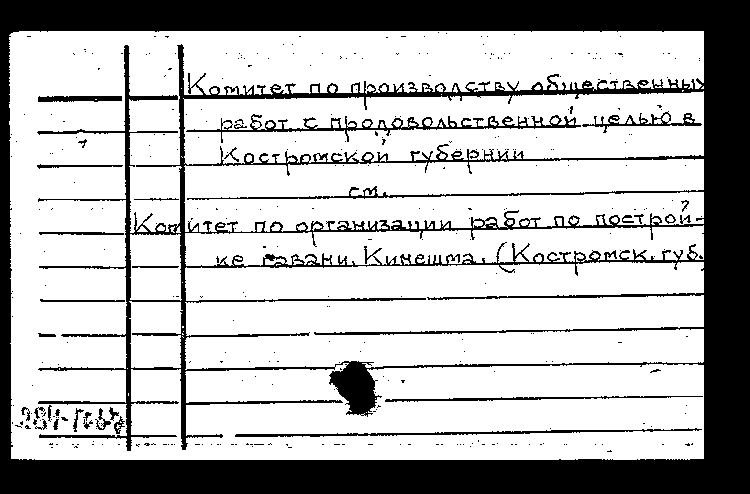 Комитет по производству общественных
работ с продовольственной целью в
Костромской губернии
см.
Комитет по организации работ по построй-
ке гавани. Кинешма. (Костромск. губ.